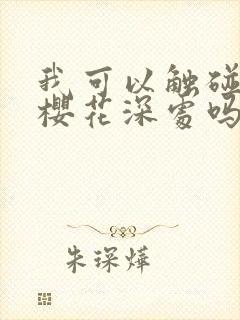 我可以触碰
樱花深处吗
朱琛烨